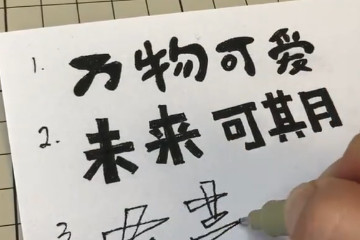 1. 万物可爱
2. 未来可期月
3.